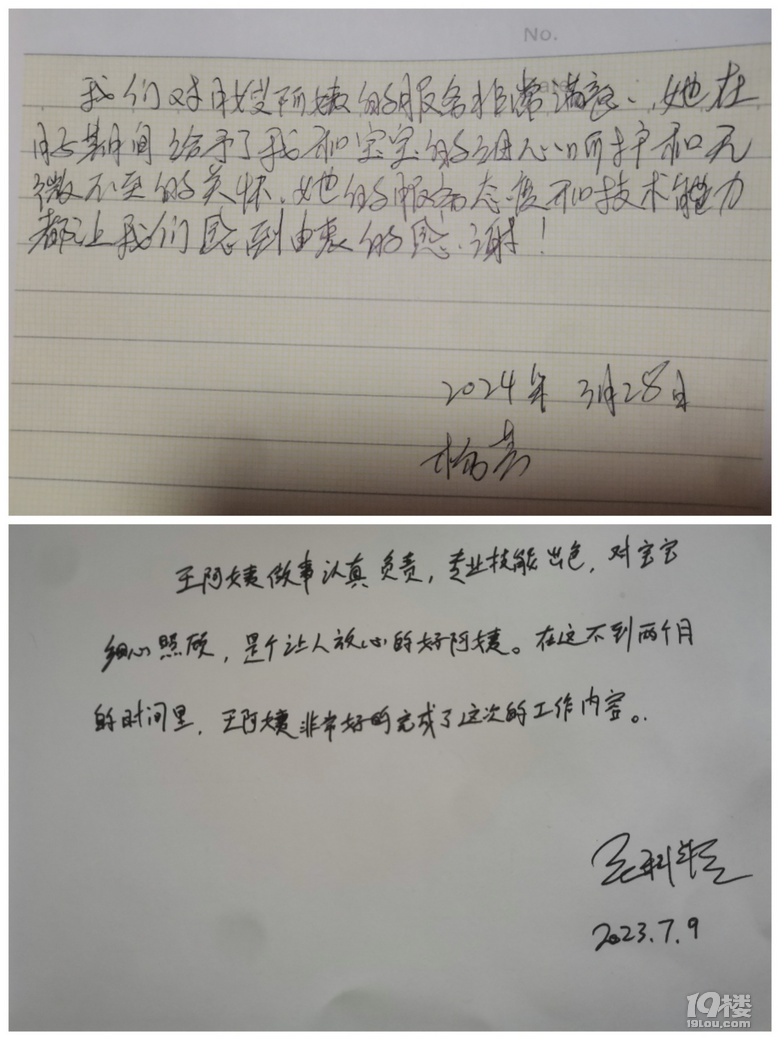 No.
我们对月嫂阿姨的服务非常满意、她在
月子期间给予了我和宝宝的细心呵护和无
微不至的关怀、她的服务态度和技术能力
都让我们感到由衷的感谢!
2024年 3月28日
王阿姨做事认真负责，专业技能出色，对宝宝
细心照顾，是个让人放心的好阿姨。在这不到两个月
的时间里，王阿姨非常好的完成了这次的工作内容。
2023.7.9
19楼
19lou.com